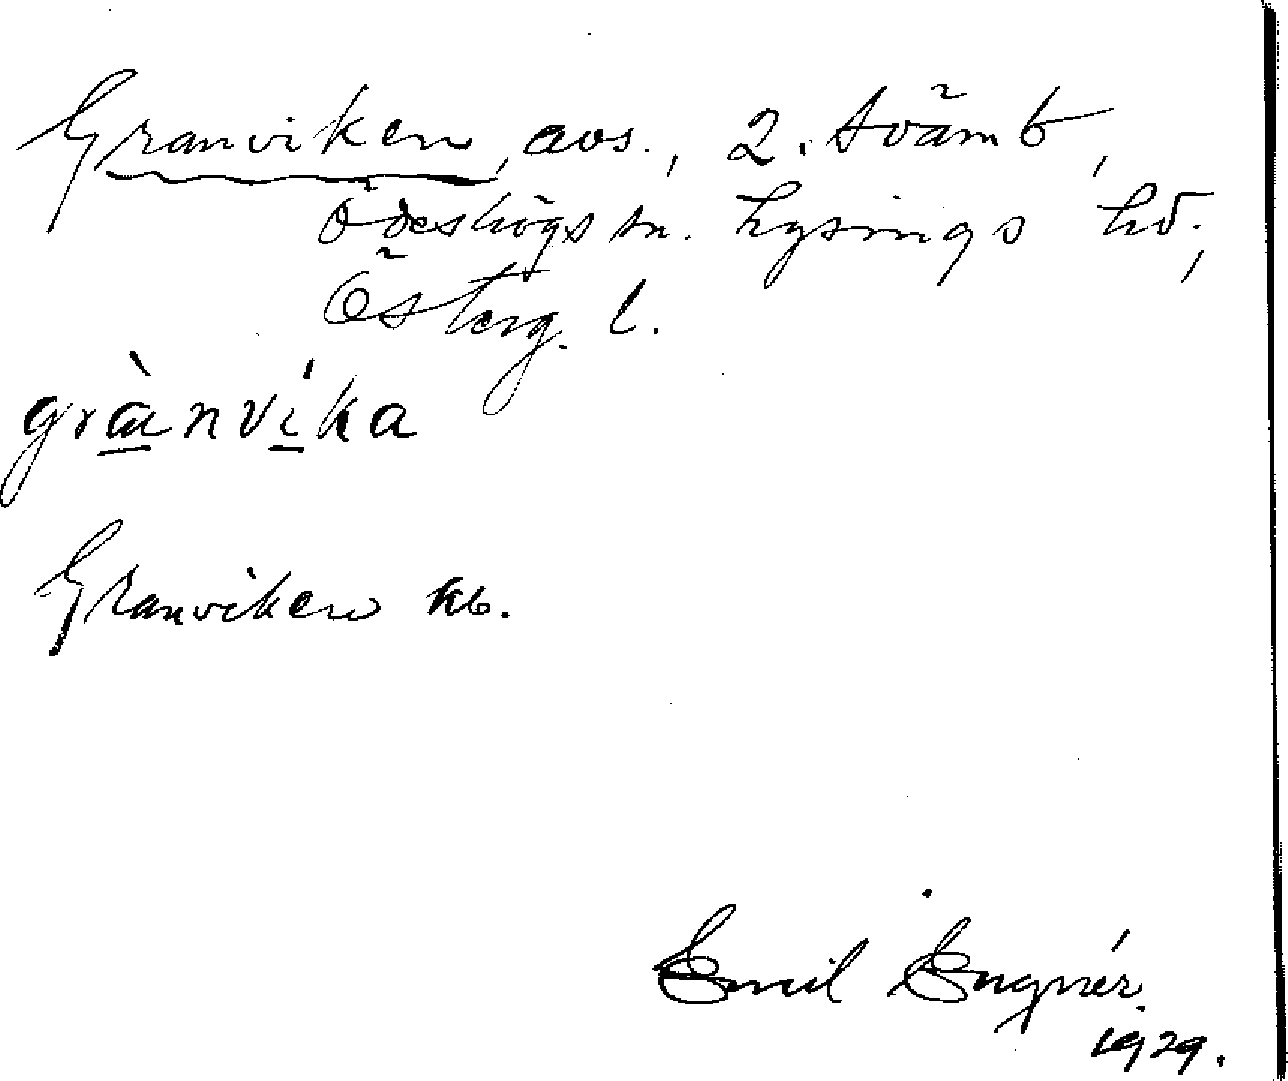 Granviken, avs., 2. tvämb,
Ödeshögs sn. Lysings hd.,
Österg. l.
grànvíka
Granviken kb.
Emil Engnér.
1929.